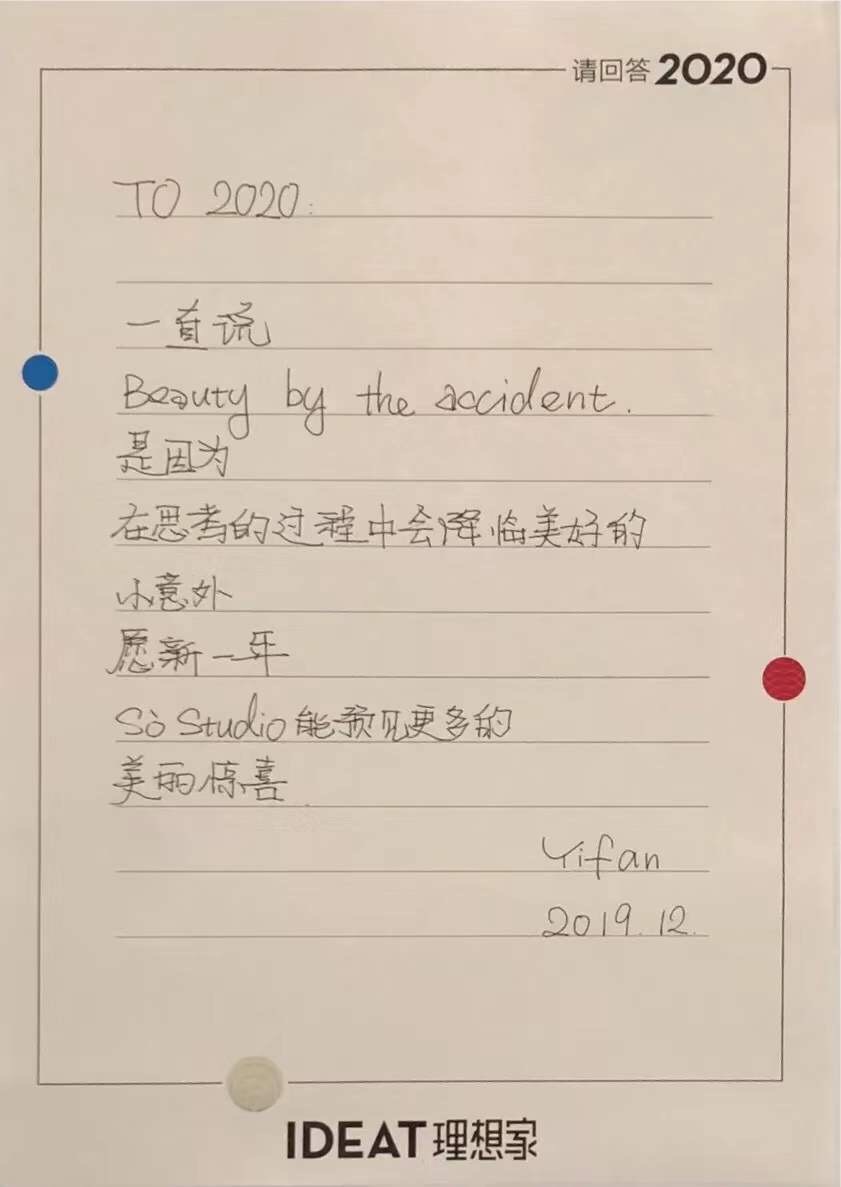 请回答2020
TO 2020:
一直说
Beauty by the accident.
是因为
在思考的过程中会降临美好的
小意外
愿新一年
Sò Studio 能预见更多的
美丽惊喜
Yifan
2019.12.
IDEAT理想家